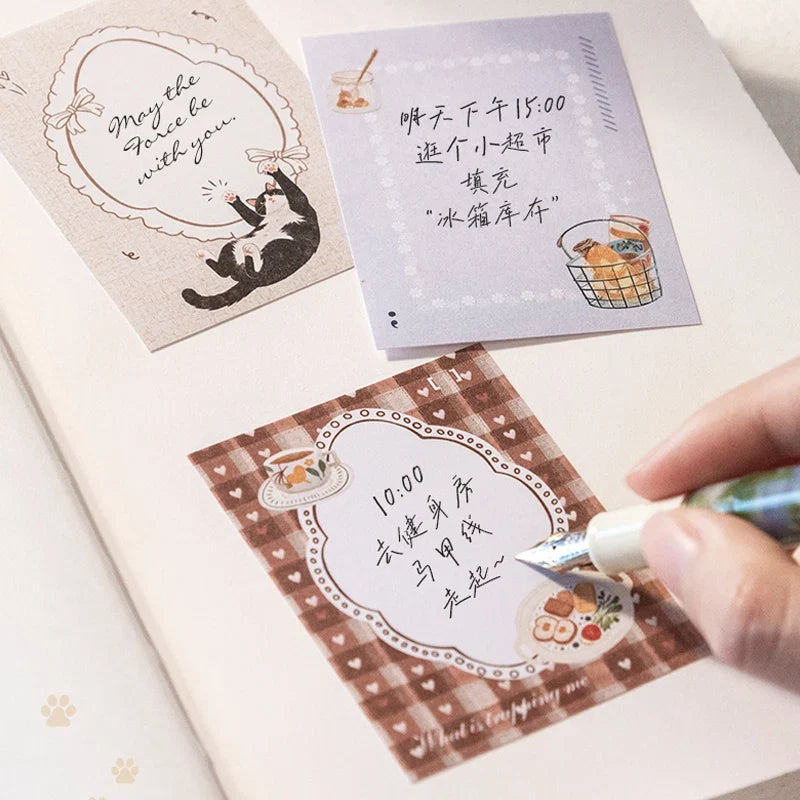 May the
Force be
with you.
明天下午15:00
逛个小超市
填充
“冰箱库存”
10:00
去健身房
马甲线
走起~
What is trapping me